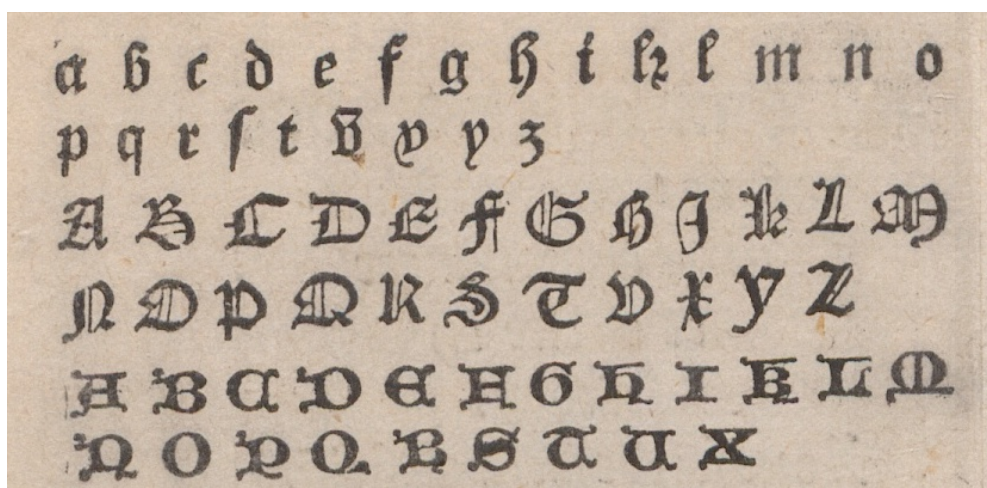 a b c d e f g h i k l m n o
p q r ſ t v̄ v y z
A B C D E F G H J K L M
N O P Q R S T V X Y Z
A B C D E F G H I K L M
N O P Q R S T U X